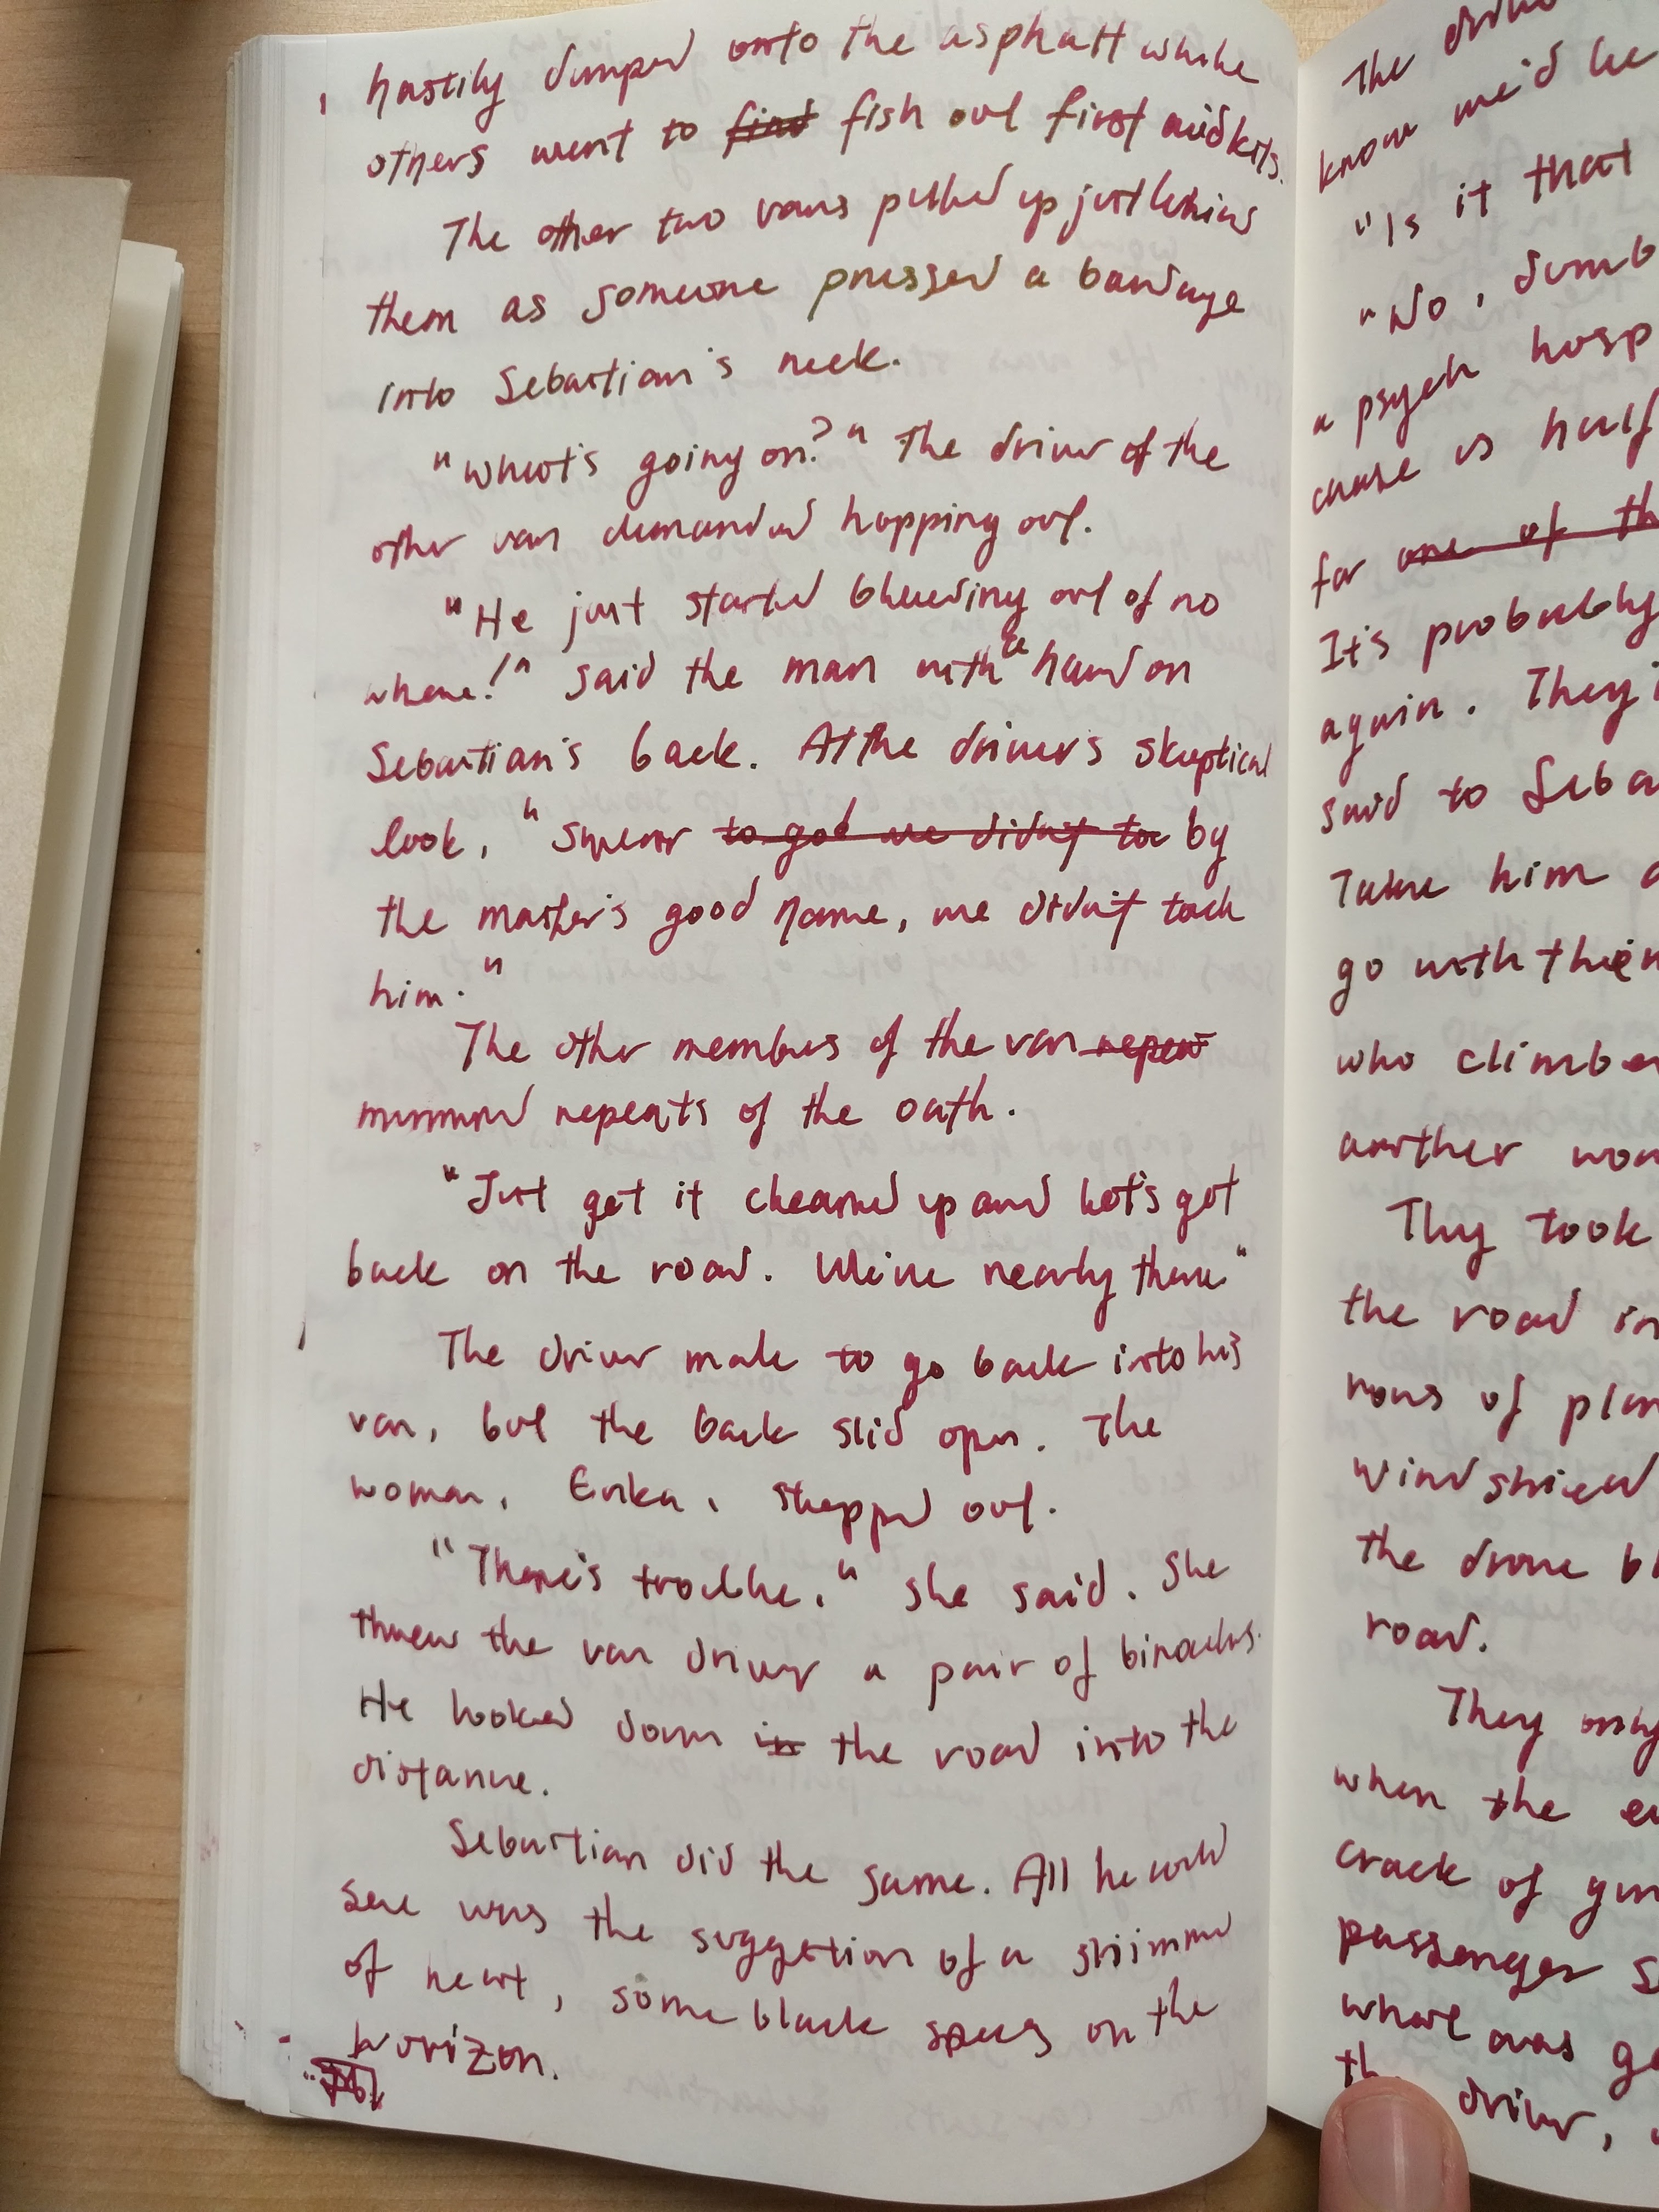 hastily dumped onto the asphalt while
others went to find fish out first aid kits.
The other two vans pulled up just behind
them as someone pressed a bandage
into Sebastian's neck.
"What's going on?" The driver of the
other van demanded hopping out.
"He just started bleeding out of no
where!" said the man with a hand on
Sebastian's back. At the driver's skeptical
look, "Swear to god we didn't to by
the master's good name, we didn't touch
him."
The other members of the van repeat
murmured repeats of the oath.
"Just get it cleaned up and let's get
back on the road. We're nearly there"
The driver made to go back into his
van, but the back slid open. The
woman, Erika, stepped out.
"There's trouble," she said. She
threw the van driver a pair of binoculars.
He looked down in the road into the
distance.
Sebastian did the same. All he could
see was the suggestion of a shimmer
of heat, some black specs on the
horizon.
The
know we'd be
"Is it that
"No, dumb
a psych hosp
is half
for one of th
It's probably
again. They
said to Seba
Take him
go with them
who climbe
another wom
They took
the road in
rows of plan
windshield
the drone bl
road.
They only
when the
crack of gun
passenger s
what was g
the driver,